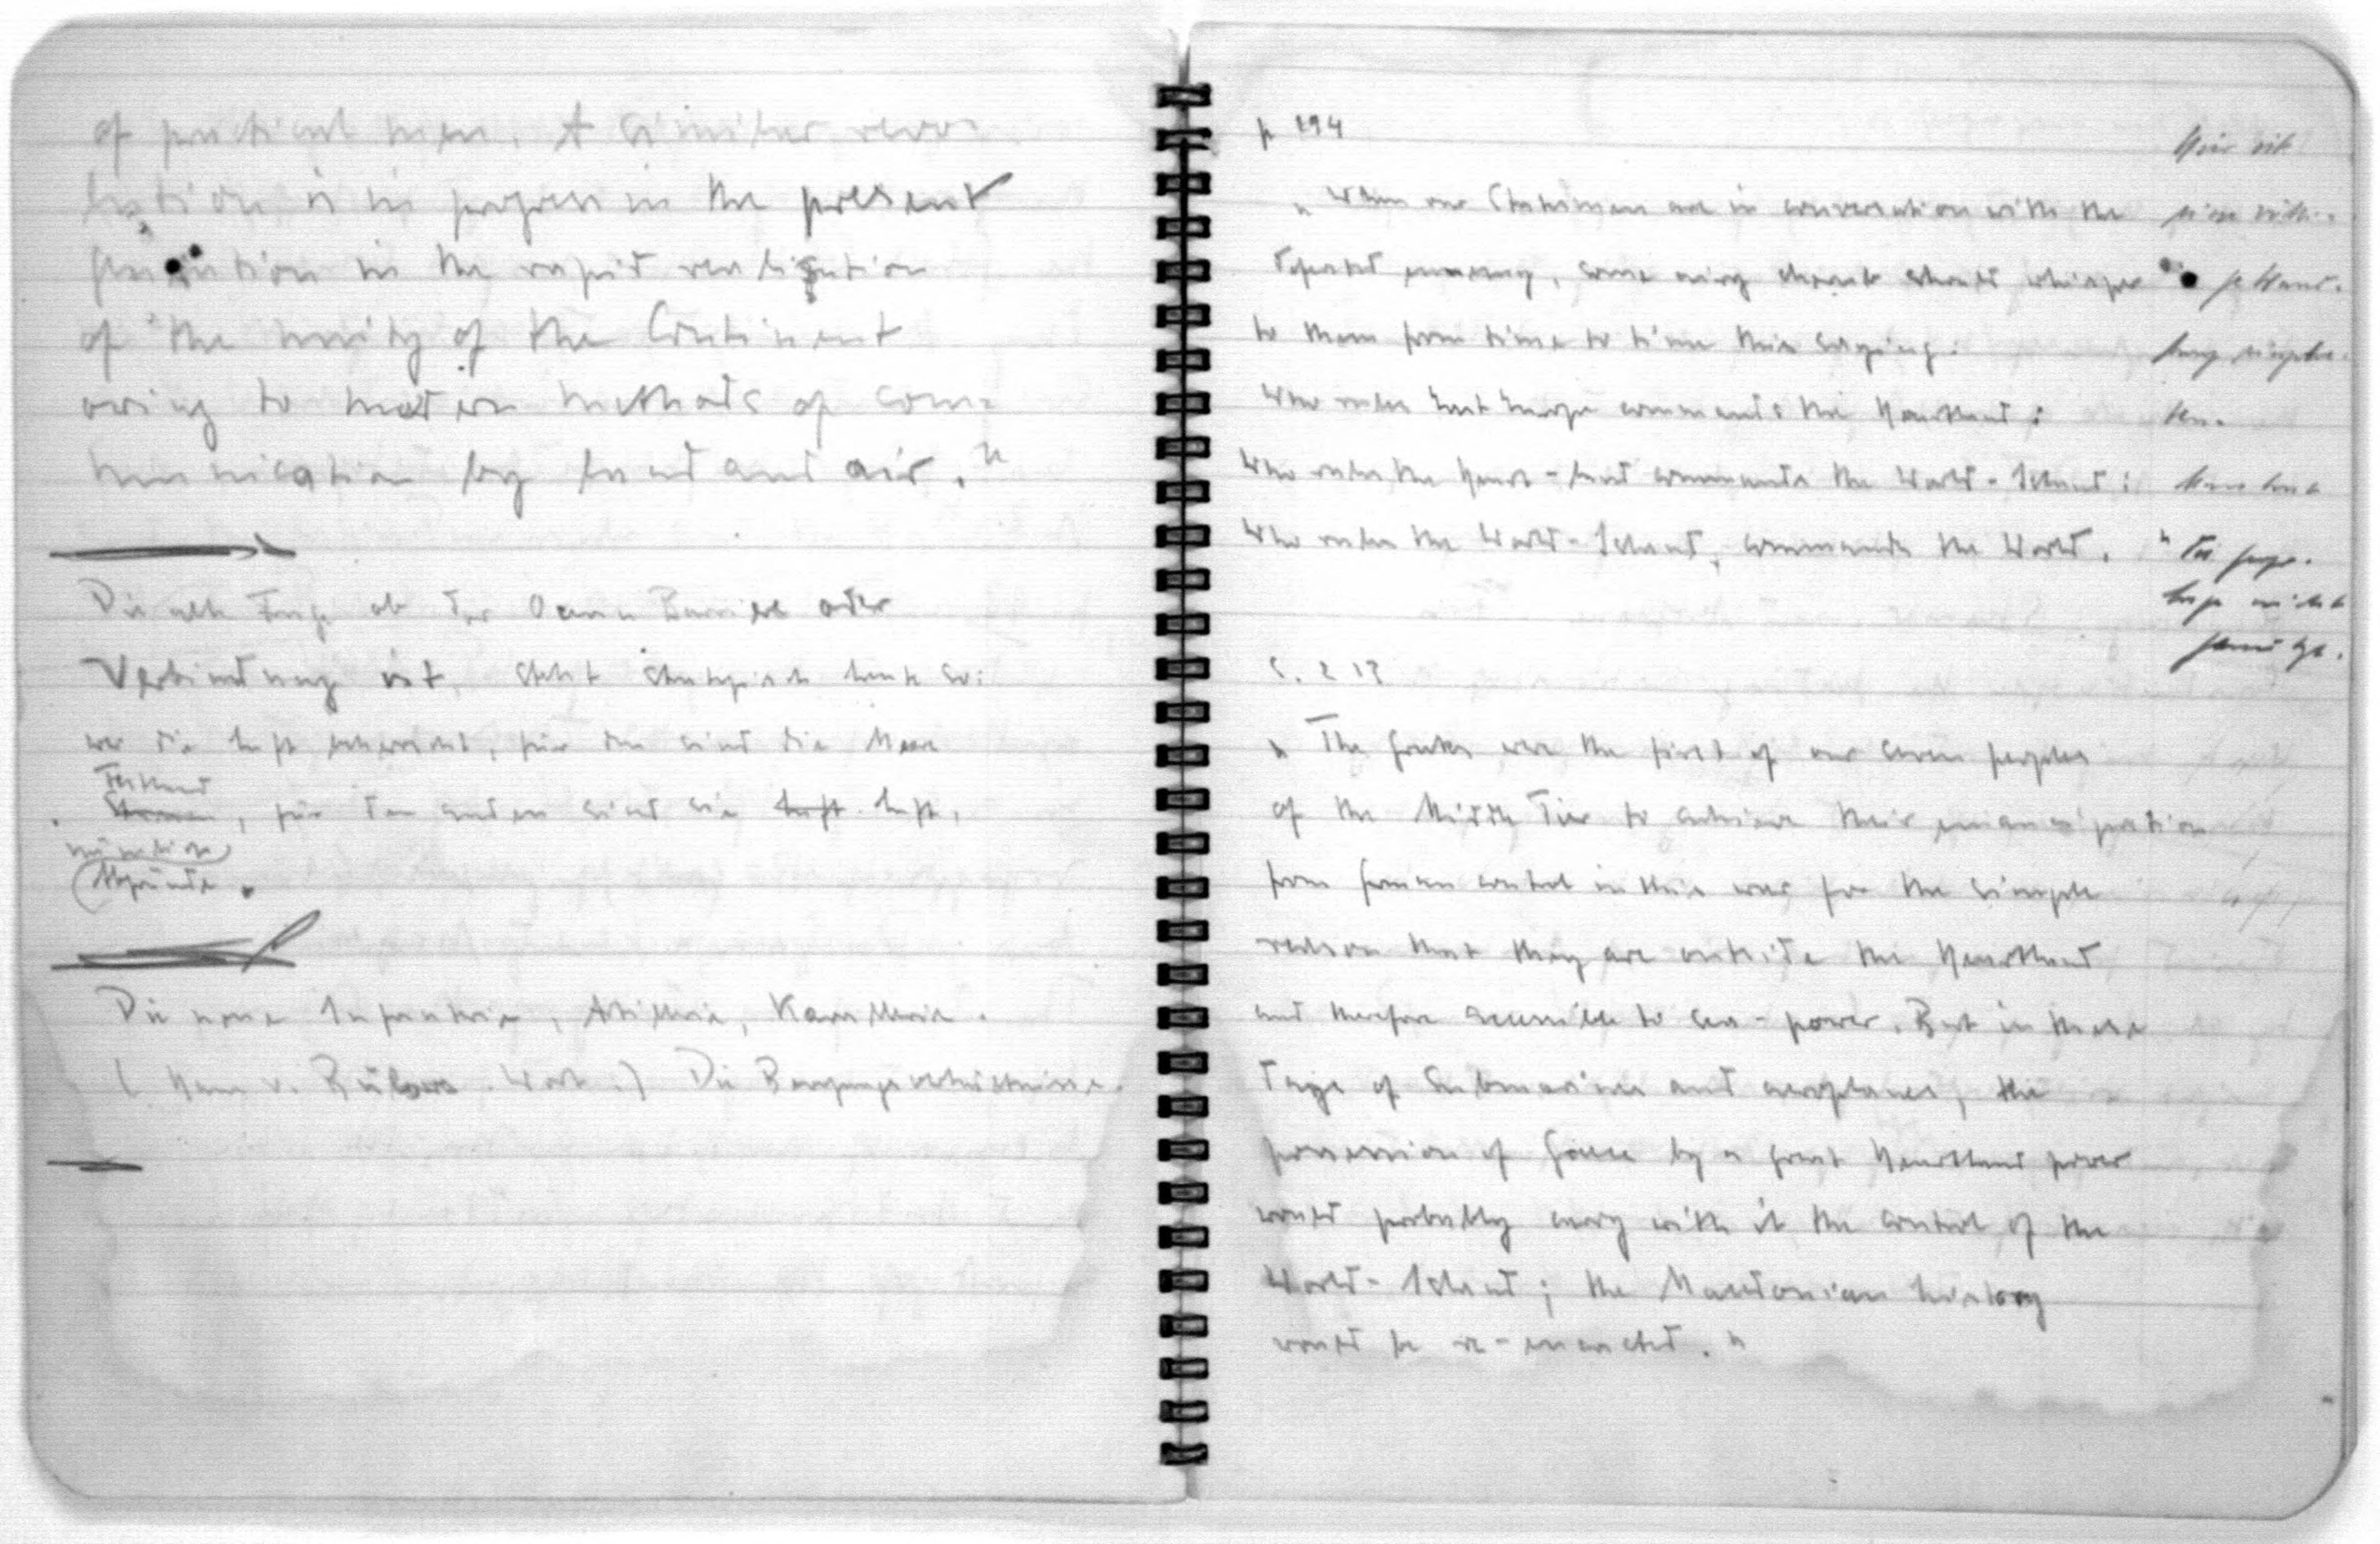 of practical men. A similar revo-
lution is in progress in the present
generation in the rapid realisation
of the unity of the Continent
owing to modern methods of com-
munication by land and air."
Die alte Frage ob der Ozean Barriere oder
Verbindung ist, steht strategisch heute so:
wer die Luft beherrscht, für den sind die Meere
Festland
, für den andern sind sie Luft,
Abgründe.
Die neue Infanterie, Artillerie, Kavallerie.
(Hans v. Bülows Wort.) Die Bewegungsverhältnisse.
p 194
"When our Statesmen are in conversation with the
defeated enemy, some airy cherub should whisper
to them from time to time this saying:
Who rules East Europe commands the Heartland:
Who rules the Heart-land commands the World-Island:
Who rules the World-Island, commands the World.
Hier ist
eine
S. 217
"The Greeks were the first of our seven peoples
of the Middle Tier to achieve their emancipation
from German control in this war, for the simple
reason that they are outside the Heartland
and therefore accessible to sea-power. But in these
days of Submarines and aeroplanes, the
possession of Greece by a great Heartland power
would probably carry with it the control of the
World-Island; the Macedonian history
would be re-enacted."